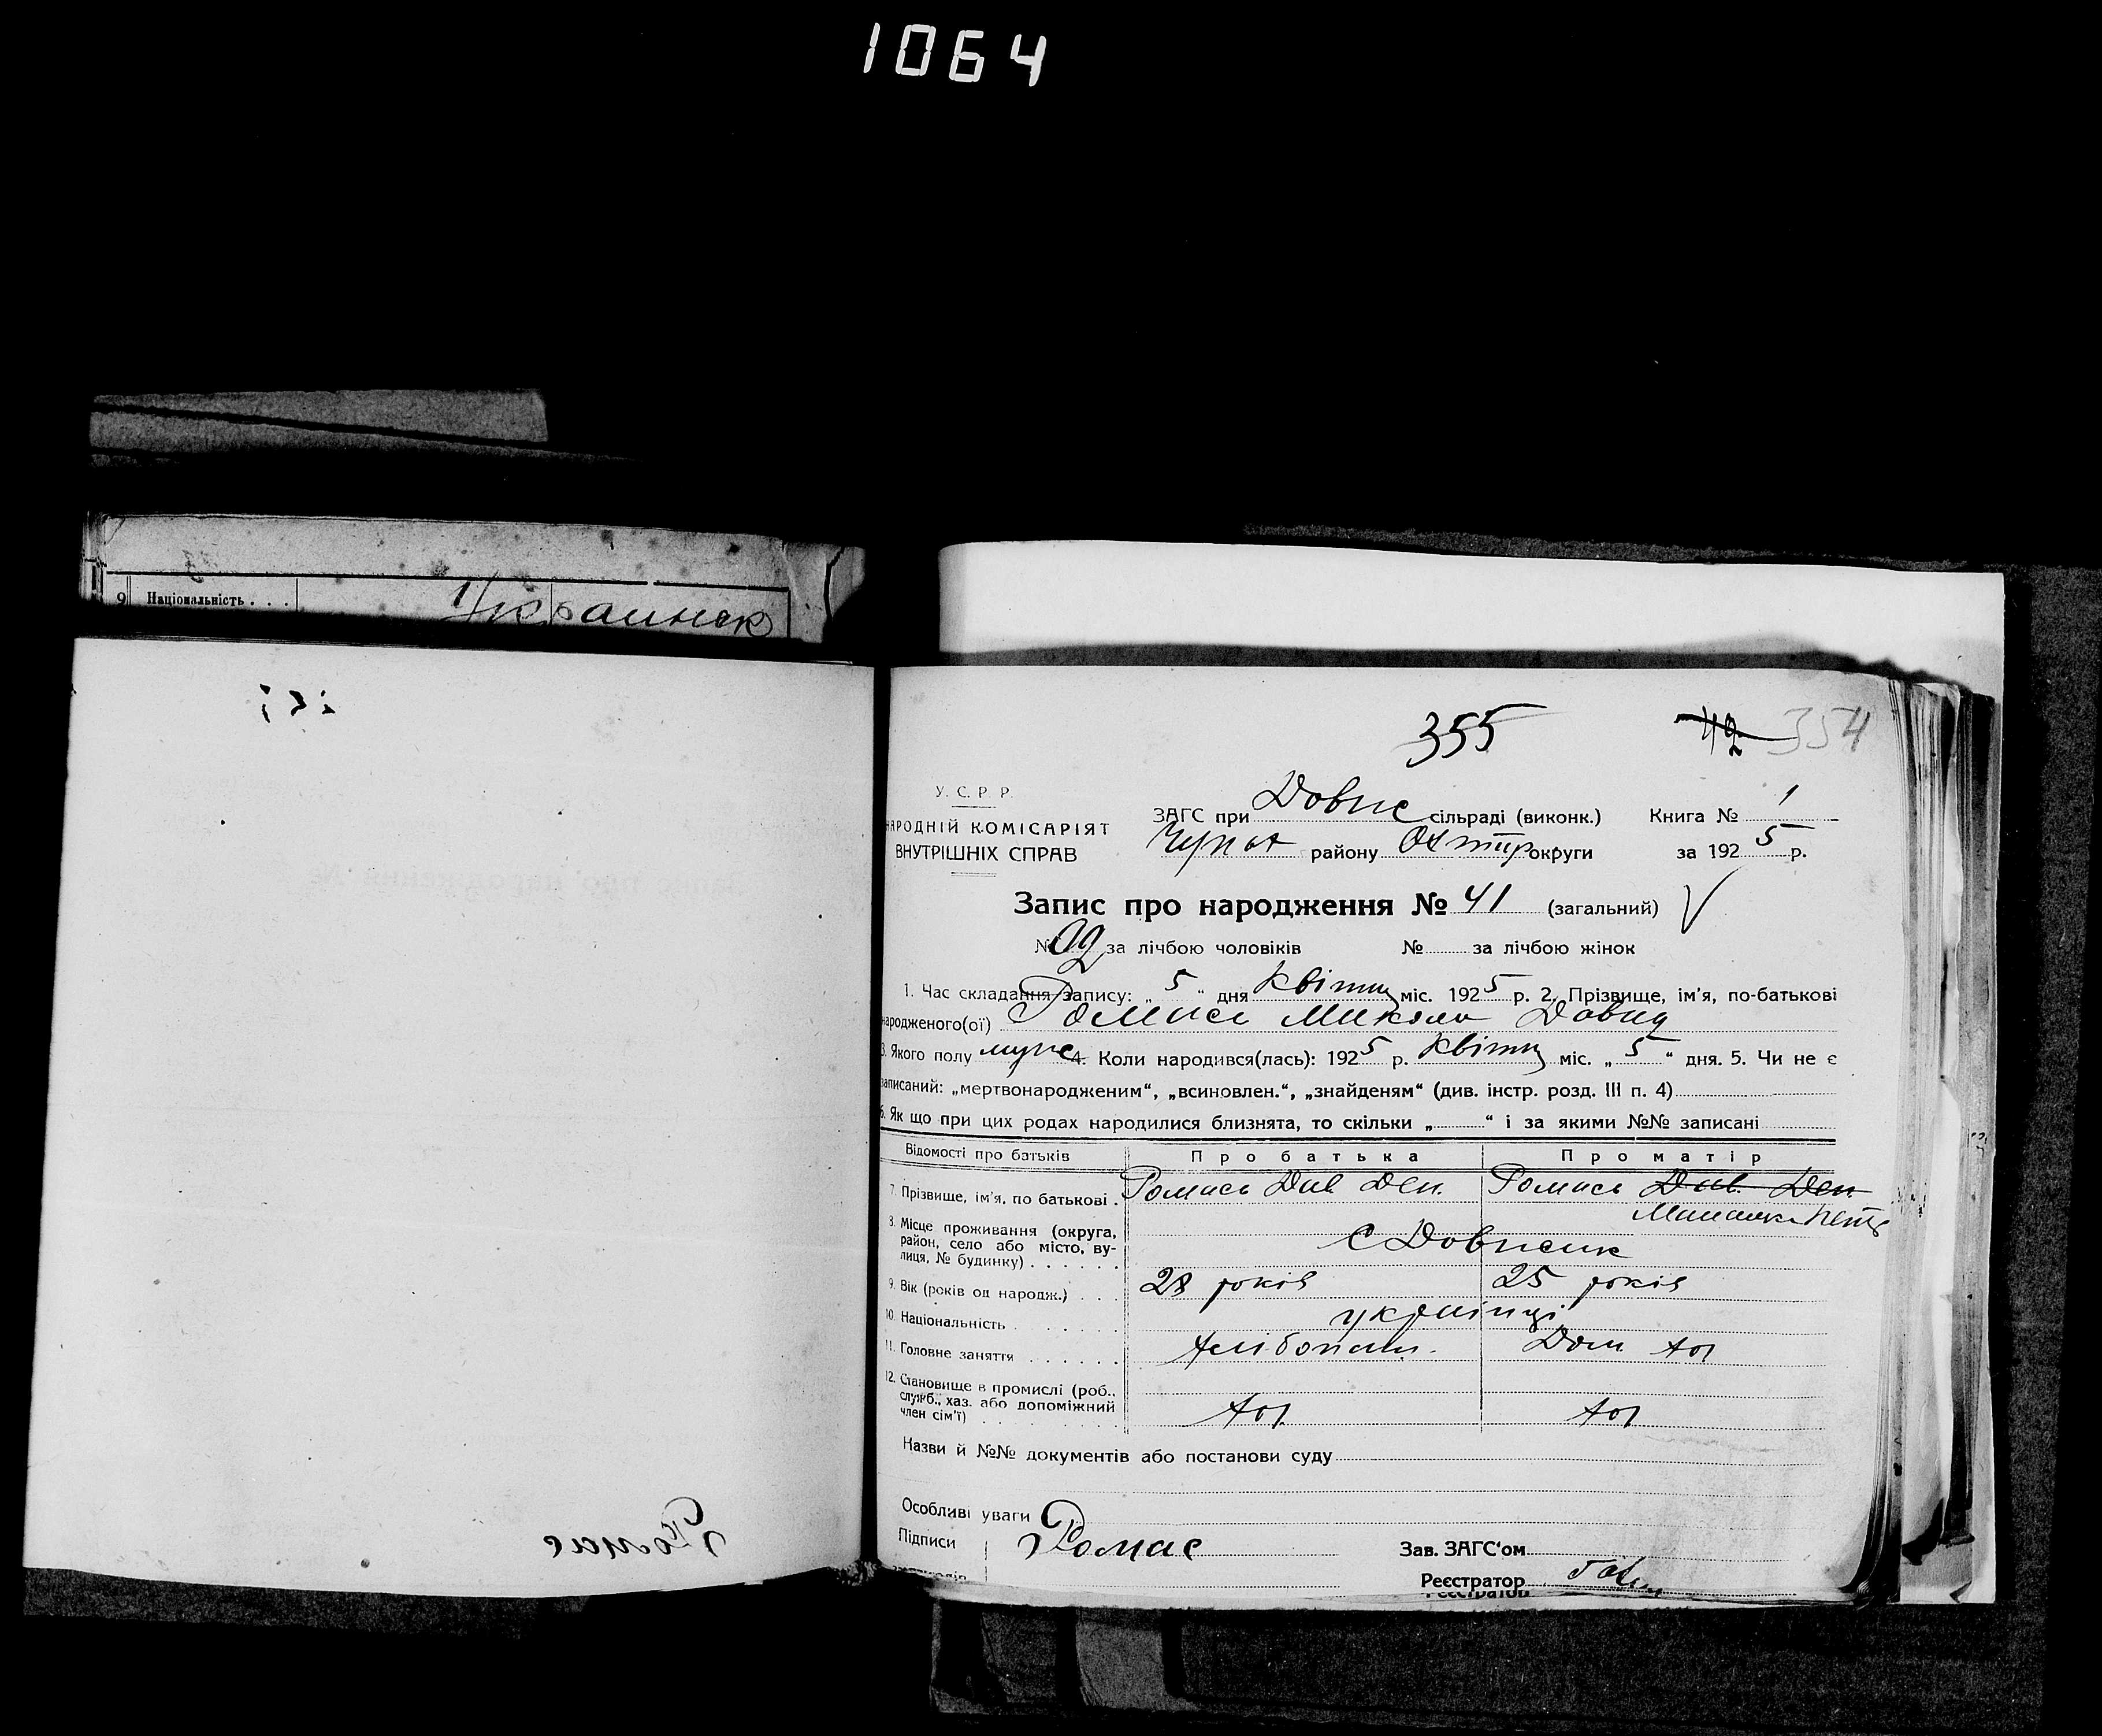 1064
9 Національність . . . Украинск
355 42 354
У. С. Р. Р.
НАРОДНІЙ КОМІСАРІЯТ
ВНУТРІШНІХ СПРАВ
ЗАГС при Довпс сільраді (виконк.) Книга № 1
району Охтир округи за 1925 р.
Запис про народження № 41 (загальний)
№ за лічбою чоловіків № за лічбою жінок
1. Час складання запису: „ 5 “ дня Квітня міс. 1925 р. 2. Прізвище, ім'я, по-батькові
народженого(ої) Ромась Микола Давид
3. Якого полу муж 4. Коли народився(лась): 1925 р. Квітня міс. „ 5 “ дня. 5. Чи не є
записаний: „мертвонародженим“, „всиновлен.“, „знайденям“ (див. інстр. розд. III п. 4)
6. Як що при цих родах народилися близнята, то скільки „ “ і за якими №№ записані
Відомості про батьків Про батька Про матір
7. Прізвище, ім'я, по батькові . Ромась Дав Ден. Ромась Дав. Ден
8. Місце проживання (округа,
район, село або місто, ву-
лиця, № будинку) . . . . . . С
9. Вік (років од народж.) . . . 28 років 25 років
10. Національність . українці
11. Головне заняття . . . . . . Хлібопаш. Дом хоз
12. Становище в промислі (роб.,
служб., хаз. або допоміжний
член сім'ї) . хоз хоз
Назви й №№ документів або постанови суду
Особливі уваги
Підписи Ромас Зав. ЗАГС'ом
Реєстратор
Реєстратор